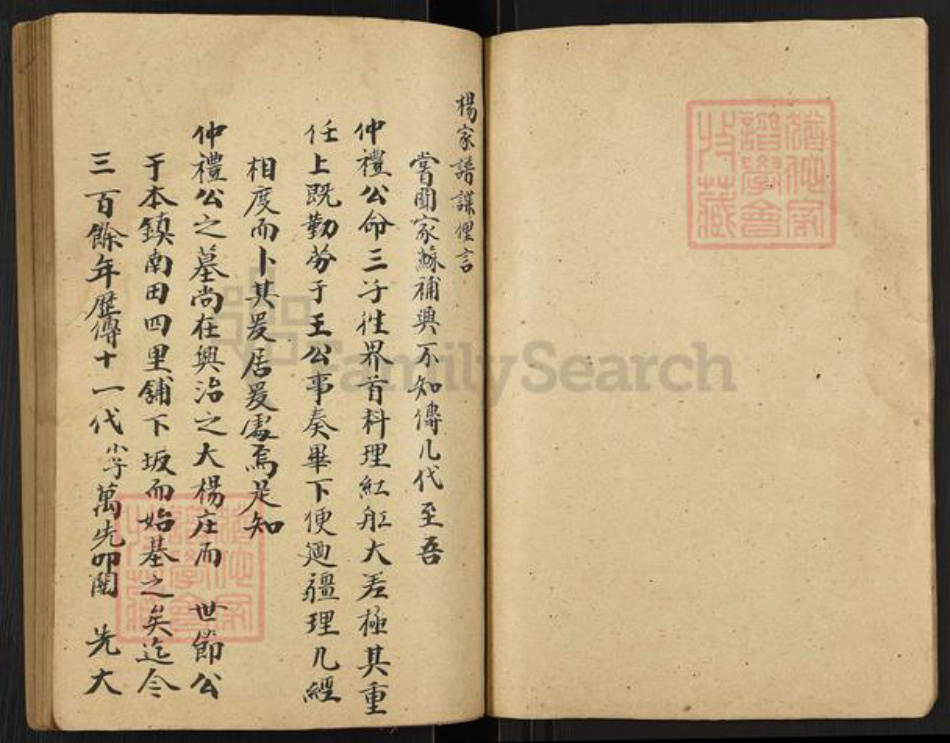 楊家譜諜俚言
嘗聞家蘇補興不知傳几代至吾
仲禮公命三子往界首料理紅舡大差極其重
任上既勤勞于王公事奏畢下便廵疆理几經
相度而卜其爰居爰處焉足知
仲禮公之墓尚在興治之大楊庄而 世節公
于本鎮南田四里舖下坂而始基之矣迄今
三百餘年歷傳十一代小子萬先叩闗 先大
FamilySearch